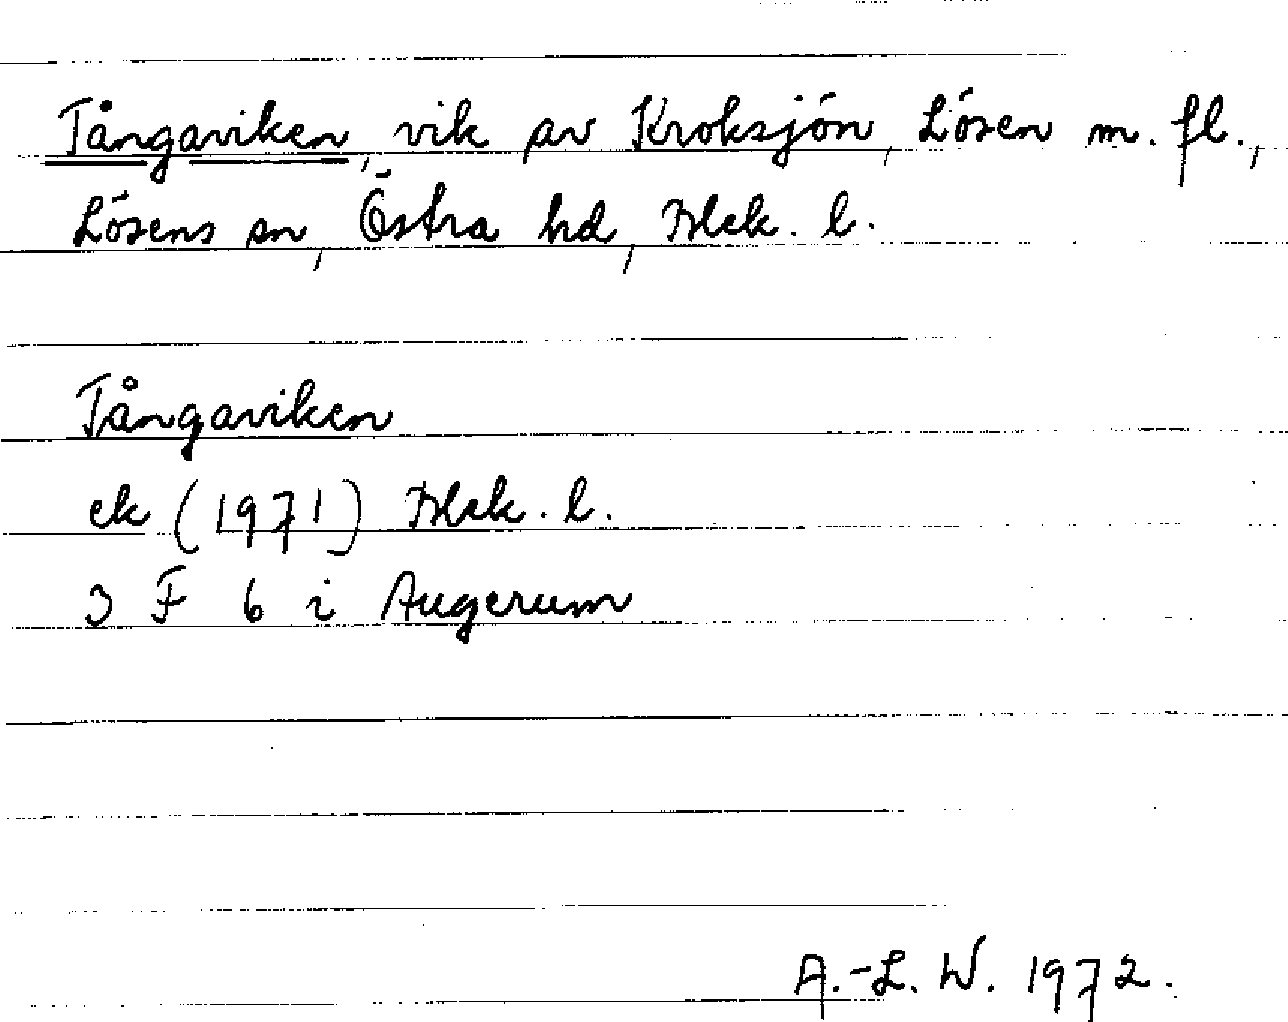 Tångaviken, vik av Kroksjön, Lösen m. fl.,
Lösens sn, Östra hd, Blek. l.
Tångaviken
ek (1971) Blek. l.
3 F 6 i Augerum
A.-L. W. 1972.